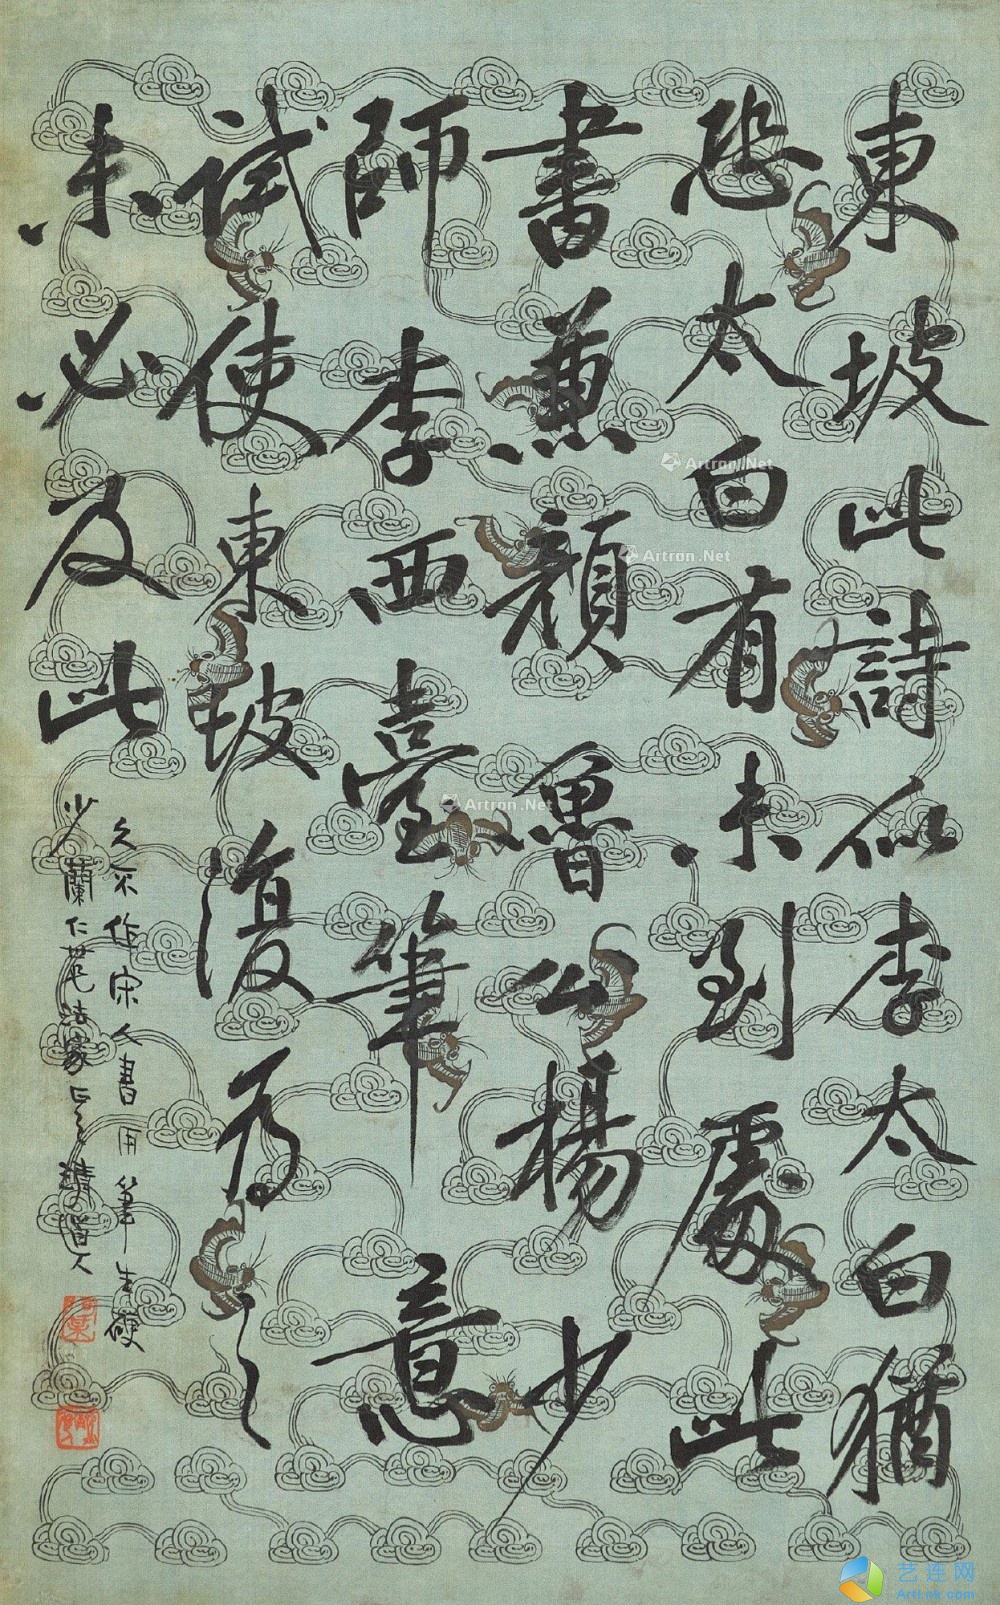 東坡此詩似李太白猶
恐太白有未到處此
書兼顏魯公楊少
師李西臺筆意
試使東坡復為之
未必及此
久不作宋人書用筆生硬
少蘭仁世兄法家正之 清道人
Artron.Net
Artron.Net
Artron.Net
艺连网
ArtLnk.com